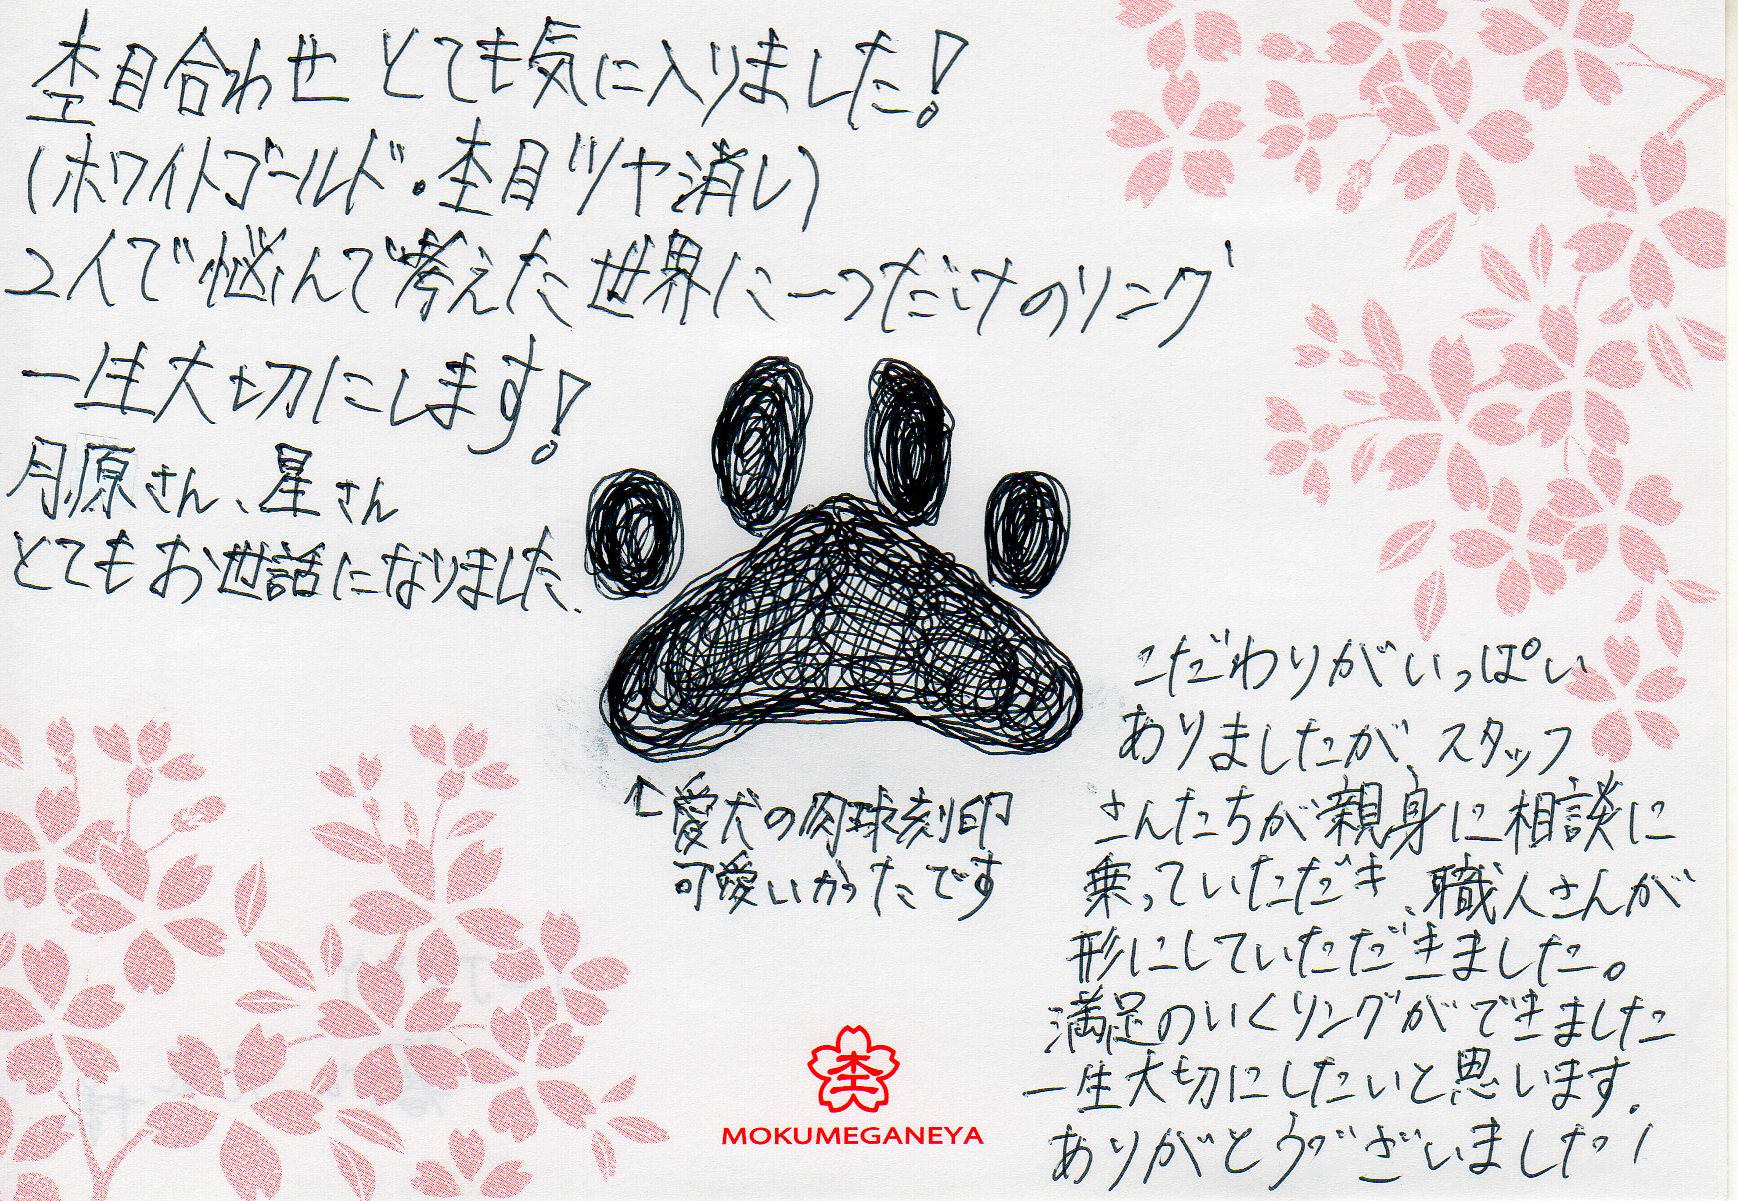 杢目合わせ とても気に入りました!
(ホワイトゴールド・杢目ツヤ消し)
2人で悩んで考えた世界に一つだけのリング
一生大切にします!
月原さん、星さん
とてもお世話になりました。
↑愛犬の肉球刻印
可愛いかったです
こだわりがいっぱい
ありましたが、スタッフ
さんたちが親身に相談に
乗っていただき、職人さんが
形にしていただきました。
満足のいくリングができました
一生大切にしたいと思います。
ありがとうございました!
杢
MOKUMEGANEYA